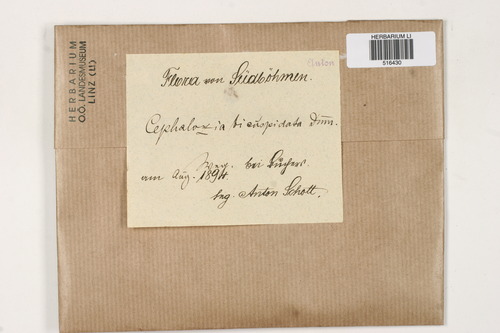 HERBARIUM
O.Ö. LANDESMUSEUM
LINZ (LI)
HERBARIUM LI
516430
Anton
Flora von Südböhmen.
Cephaloxia bicuspidata Dum.
Weg. bei Buchers.
am Aug. 1894.
leg. Anton Schott.